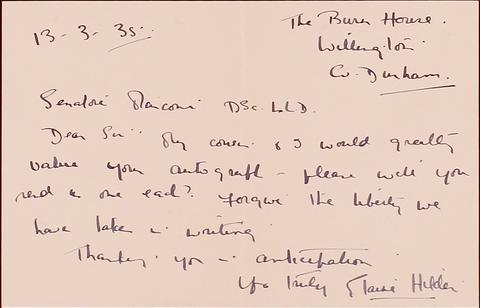 13-3-35.
The Burn House.
Willington
Co. Durham.
Senatore Marconi DSc. LLD.
Dear Sir: My cousin & I would greatly
value your autograph - please will you
send us one each? Forgive the liberty we
have taken in writing
Thanking you in anticipation
Yrs truly Elaine